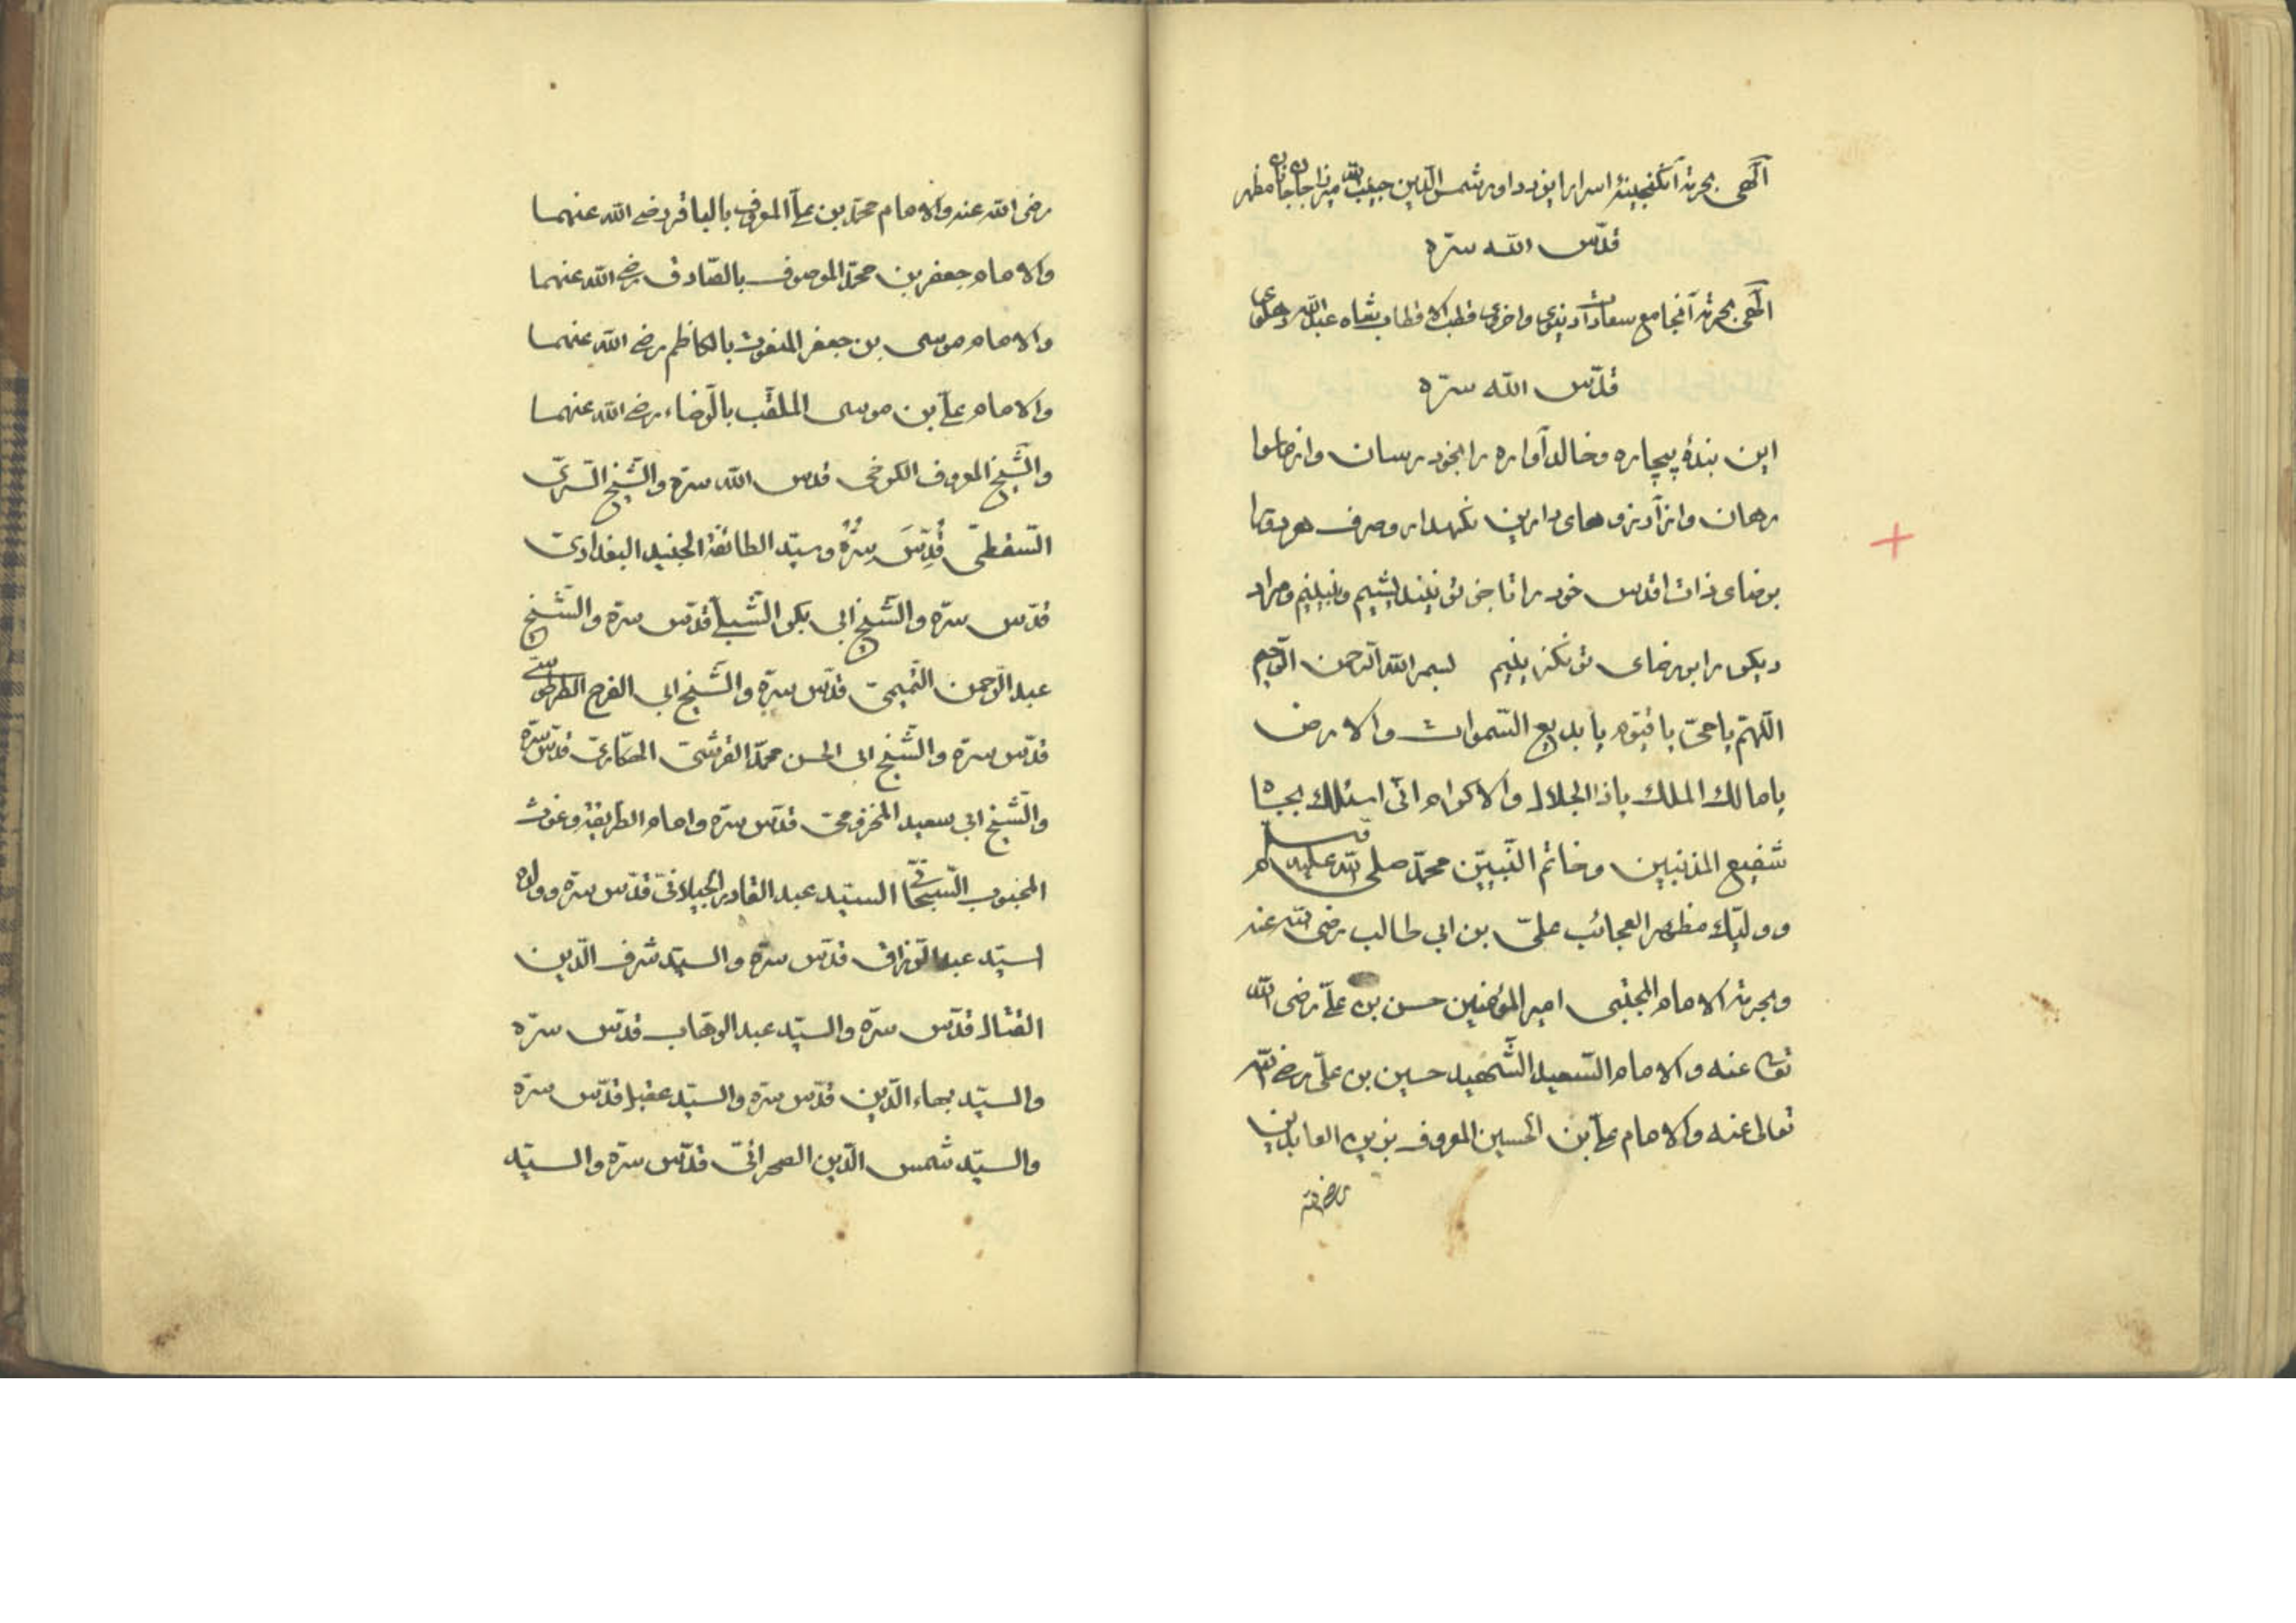 الهى بحرمة آن گنجينۀ اسرار ايزد داور شمس الدين حبيب الله ميرزا جان جانان مظهر
قدّس الله سرّه
الهى بحرمة آنجامع سعادات دنيوى واخروى قطب الاقطاب بشاه عبدالله دهلوى
قدّس الله سرّه
اين بندۀ بيچاره وخالد آواره را بخود رسان واز ماسوا
رهان واز آرزوهاى دارين نگهدار وصرف
برضاى ذات اقدس خود را تا جز تو ننديشيم ونبينيم ومراد
ديگر را بر رضاى تو نگزينيم بسم الله الرحمن الرّحيم
اللّهمّ ياحىّ ياقيّوم يا بديع السّموات والارض
يامالك الملك ياذالجلال والاكرام انّى اسئلك بجاه
شفيع المذنبين وخاتم النّبيّن محمّد صلى الله عليه وسلم
وولّيك مظهر العجائب علىّ بن ابى طالب رضى الله عنه
وبحرمة الامام المجتبى امير المؤمنين حسن بن علىّ رضى الله
تعالى عنه والامام السّعيد الشّهيد حسين بن علىّ رضى الله
تعالى عنه والامام علىّ بن الحسين المعروف بزين العابدين
رضى الله عنه والامام محمّد بن علىّ المعروف بالباقر رضى الله عنهما
والامام جعفر بن محمّد الموصوف بالصّادق رضى الله عنهما
والامام موسى بن جعفر المنعوت بالكاظم رضى الله عنهما
والامام علىّ بن موسى الملقّب بالرّضاء رضى الله عنهما
والشّيخ المعروف الكرخى قدس الله سرّه والشّيخ السّرىّ
السّقطىّ قُدِّسَ سِرُّهُ وسيّد الطائفة الجنيد البغدادىّ
قدّس سرّه والشّيخ ابى بكر الشّبلىّ قدّس سرّه والشّيخ
عبد الرّحمن التّميمىّ قدّس سرّه والشّيخ ابى الفرح الطرطوسىّ
قدّس سرّه والشّيخ ابى الحسن محمّد القرشىّ الهكّارىّ قدّس سرّه
والشّيخ ابى سعيد المخزومىّ قدّس سرّه وامام الطّريقة وغوث
المحبوب السّبحانىّ السيّد عبد القادر الجيلانىّ قدّس سرّه وولده
السيّد عبد الرّزاق قدّس سرّه والسيّد شرف الدّين
القتال قدّس سرّه والسيّد عبد الوهّاب قدّس سرّه
والسيّد بهاء الدّين قدّس سرّه والسيّد عقيل قدّس سرّه
والسيّد شمس الدّين الصحرائىّ قدّس سرّه والسيّد